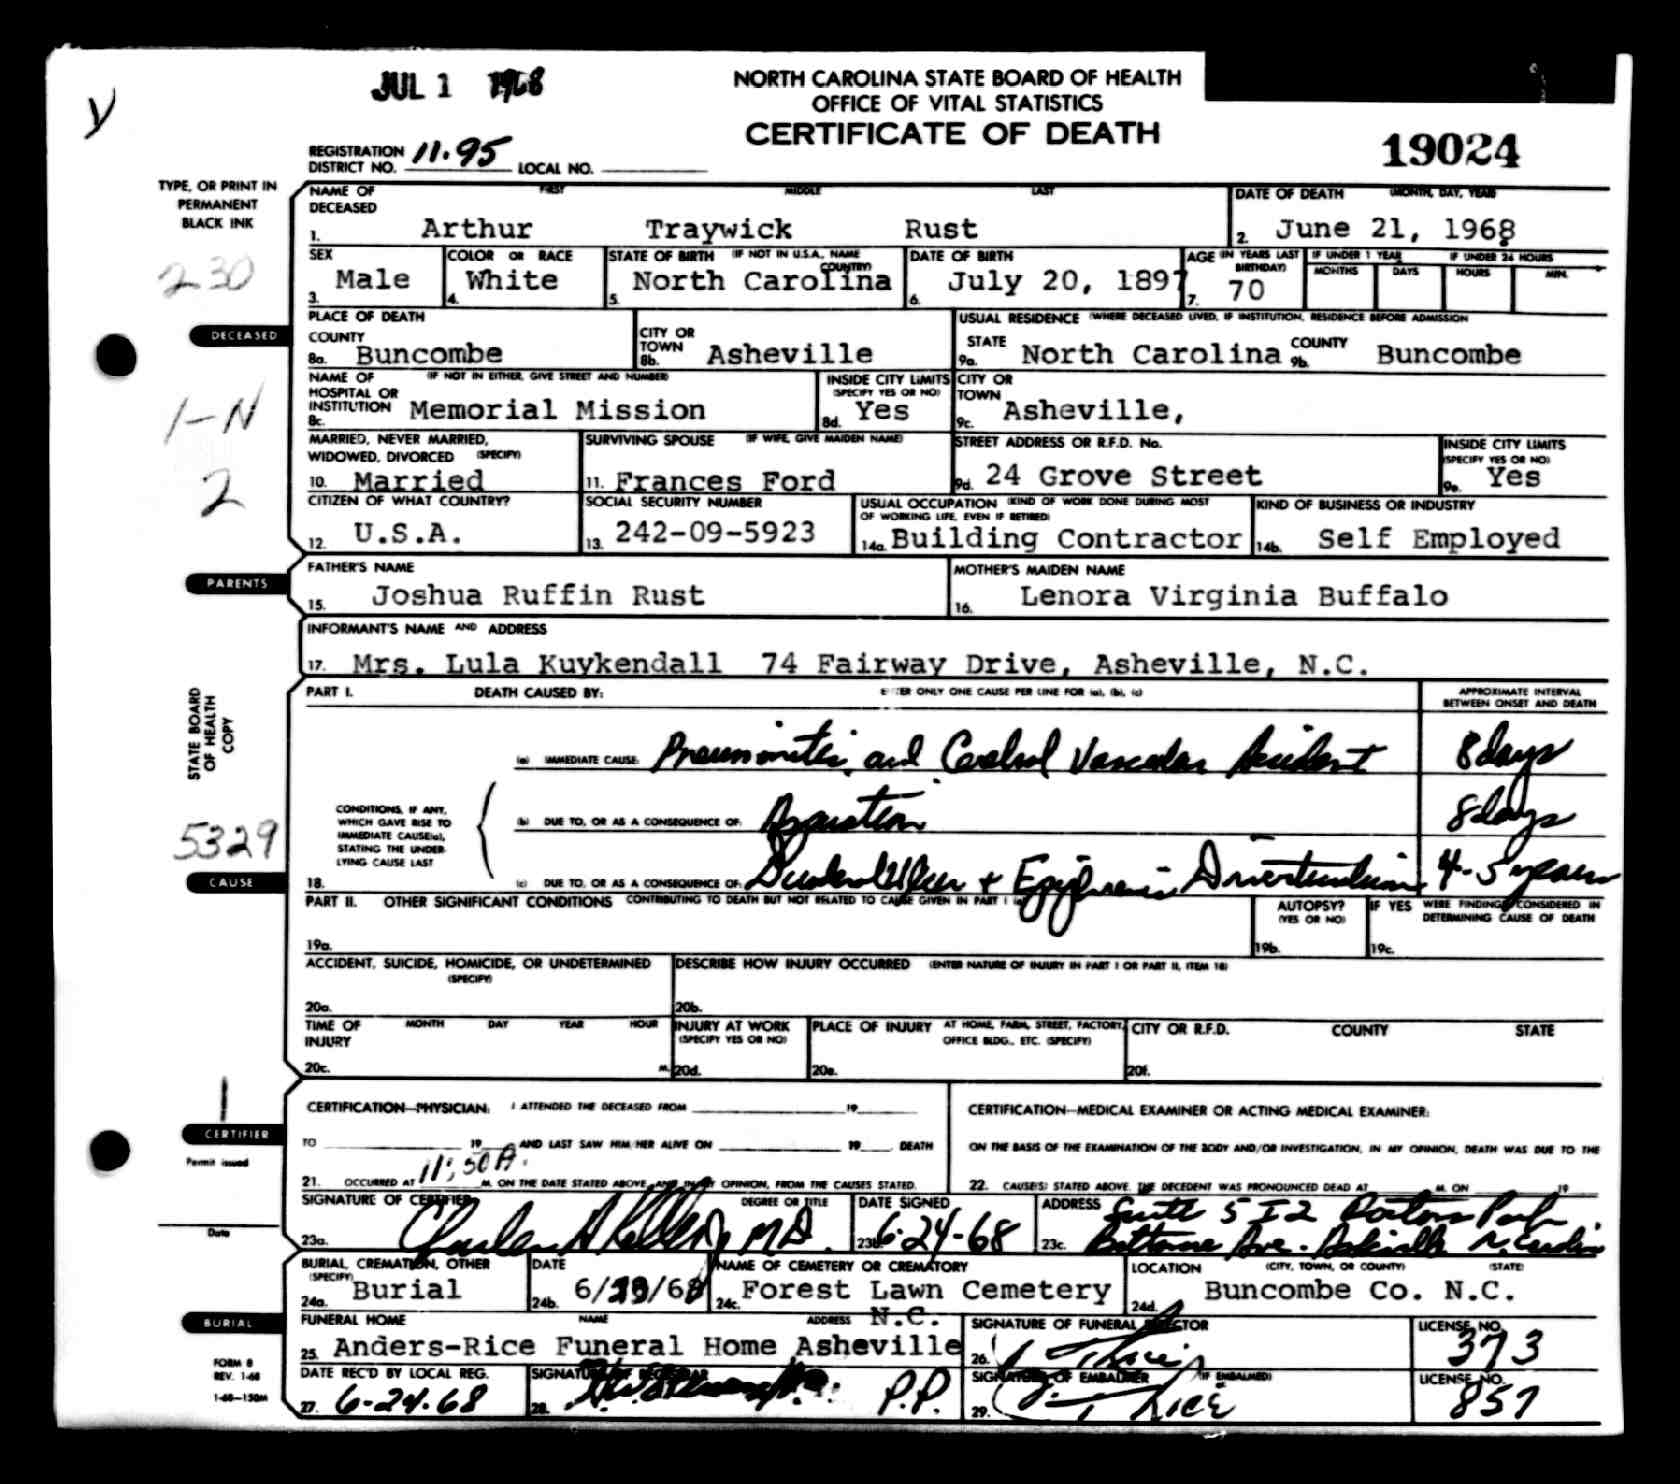 JUL 1 1968
NORTH CAROLINA STATE BOARD OF HEALTH
OFFICE OF VITAL STATISTICS
CERTIFICATE OF DEATH
19024
REGISTRATION DISTRICT NO. 11-95 LOCAL NO.
TYPE, OR PRINT IN
PERMANENT
BLACK INK
230
DECEASED
1-N
2
NAME OF DECEASED FIRST MIDDLE LAST
1. Arthur Traywick Rust
DATE OF DEATH (MONTH, DAY, YEAR)
2. June 21, 1968
SEX
3. Male
COLOR OR RACE
4. White
STATE OF BIRTH (IF NOT IN U.S.A., NAME COUNTRY)
5. North Carolina
DATE OF BIRTH
6. July 20, 1897
AGE (IN YEARS LAST BIRTHDAY)
7. 70
IF UNDER 1 YEAR MONTHS DAYS
IF UNDER 24 HOURS HOURS MIN.
PLACE OF DEATH
COUNTY
8a. Buncombe
CITY OR TOWN
8b. Asheville
USUAL RESIDENCE (WHERE DECEASED LIVED, IF INSTITUTION, RESIDENCE BEFORE ADMISSION
STATE
9a. North Carolina
COUNTY
9b. Buncombe
NAME OF HOSPITAL OR INSTITUTION (IF NOT IN EITHER, GIVE STREET AND NUMBER)
8c. Memorial Mission
INSIDE CITY LIMITS (SPECIFY YES OR NO)
8d. Yes
CITY OR TOWN
9c. Asheville,
MARRIED, NEVER MARRIED, WIDOWED, DIVORCED (SPECIFY)
10. Married
SURVIVING SPOUSE (IF WIFE, GIVE MAIDEN NAME)
11. Frances Ford
STREET ADDRESS OR R.F.D. No.
9d. 24 Grove Street
INSIDE CITY LIMITS (SPECIFY YES OR NO)
9e. Yes
CITIZEN OF WHAT COUNTRY?
12. U.S.A.
SOCIAL SECURITY NUMBER
13. 242-09-5923
USUAL OCCUPATION (KIND OF WORK DONE DURING MOST OF WORKING LIFE, EVEN IF RETIRED)
14a. Building Contractor
KIND OF BUSINESS OR INDUSTRY
14b. Self Employed
PARENTS
FATHER'S NAME
15. Joshua Ruffin Rust
MOTHER'S MAIDEN NAME
16. Lenora Virginia Buffalo
INFORMANT'S NAME AND ADDRESS
17. Mrs. Lula Kuykendall 74 Fairway Drive, Asheville, N.C.
STATE BOARD
OF HEALTH
COPY
5329
CAUSE
PART I. DEATH CAUSED BY: ENTER ONLY ONE CAUSE PER LINE FOR (a), (b), (c)
APPROXIMATE INTERVAL BETWEEN ONSET AND DEATH
(a) IMMEDIATE CAUSE: Pneumonitis and Cerebral Vascular Accident 8 days
CONDITIONS, IF ANY, WHICH GAVE RISE TO IMMEDIATE CAUSE(a), STATING THE UNDERLYING CAUSE LAST
(b) DUE TO, OR AS A CONSEQUENCE OF: Aspiration 8 days
18. (c) DUE TO, OR AS A CONSEQUENCE OF: Duodenal Ulcer + Epiphrenic Diverticulum 4-5 years
PART II. OTHER SIGNIFICANT CONDITIONS CONTRIBUTING TO DEATH BUT NOT RELATED TO CAUSE GIVEN IN PART I (a)
19a.
AUTOPSY? (YES OR NO)
19b.
IF YES WERE FINDINGS CONSIDERED IN DETERMINING CAUSE OF DEATH
19c.
ACCIDENT, SUICIDE, HOMICIDE, OR UNDETERMINED (SPECIFY)
20a.
DESCRIBE HOW INJURY OCCURRED (ENTER NATURE OF INJURY IN PART I OR PART II, ITEM 18)
20b.
TIME OF INJURY MONTH DAY YEAR HOUR
20c. M.
INJURY AT WORK (SPECIFY YES OR NO)
20d.
PLACE OF INJURY AT HOME, FARM, STREET, FACTORY, OFFICE BLDG., ETC. (SPECIFY)
20e.
CITY OR R.F.D. COUNTY STATE
20f.
1
CERTIFIER
Permit issued
Date
CERTIFICATION—PHYSICIAN: I ATTENDED THE DECEASED FROM 19
TO 19 AND LAST SAW HIM/HER ALIVE ON 19 DEATH
21. OCCURRED AT 11:50 A. M. ON THE DATE STATED ABOVE, AND IN MY OPINION, FROM THE CAUSES STATED.
CERTIFICATION—MEDICAL EXAMINER OR ACTING MEDICAL EXAMINER:
ON THE BASIS OF THE EXAMINATION OF THE BODY AND/OR INVESTIGATION, IN MY OPINION, DEATH WAS DUE TO THE
22. CAUSE(S) STATED ABOVE. THE DECEDENT WAS PRONOUNCED DEAD AT M. ON 19
SIGNATURE OF CERTIFIER DEGREE OR TITLE
23a. Charles A Keller MD.
DATE SIGNED
23b. 6-24-68
ADDRESS Suite 5 I2 Doctors Park
23c. Biltmore Ave. Asheville N. Carolina
BURIAL
BURIAL, CREMATION, OTHER (SPECIFY)
24a. Burial
DATE
24b. 6/23/68
NAME OF CEMETERY OR CREMATORY
24c. Forest Lawn Cemetery
LOCATION (CITY, TOWN, OR COUNTY) (STATE)
24d. Buncombe Co. N.C.
FUNERAL HOME NAME ADDRESS N.C.
25. Anders-Rice Funeral Home Asheville
SIGNATURE OF FUNERAL DIRECTOR
26. Rice
LICENSE NO.
373
FORM 8
REV. 1-68
1-68—150M
DATE REC'D BY LOCAL REG.
27. 6-24-68
SIGNATURE OF REGISTRAR
28. P.P.
SIGNATURE OF EMBALMER (IF EMBALMED)
29. Rice
LICENSE NO.
857